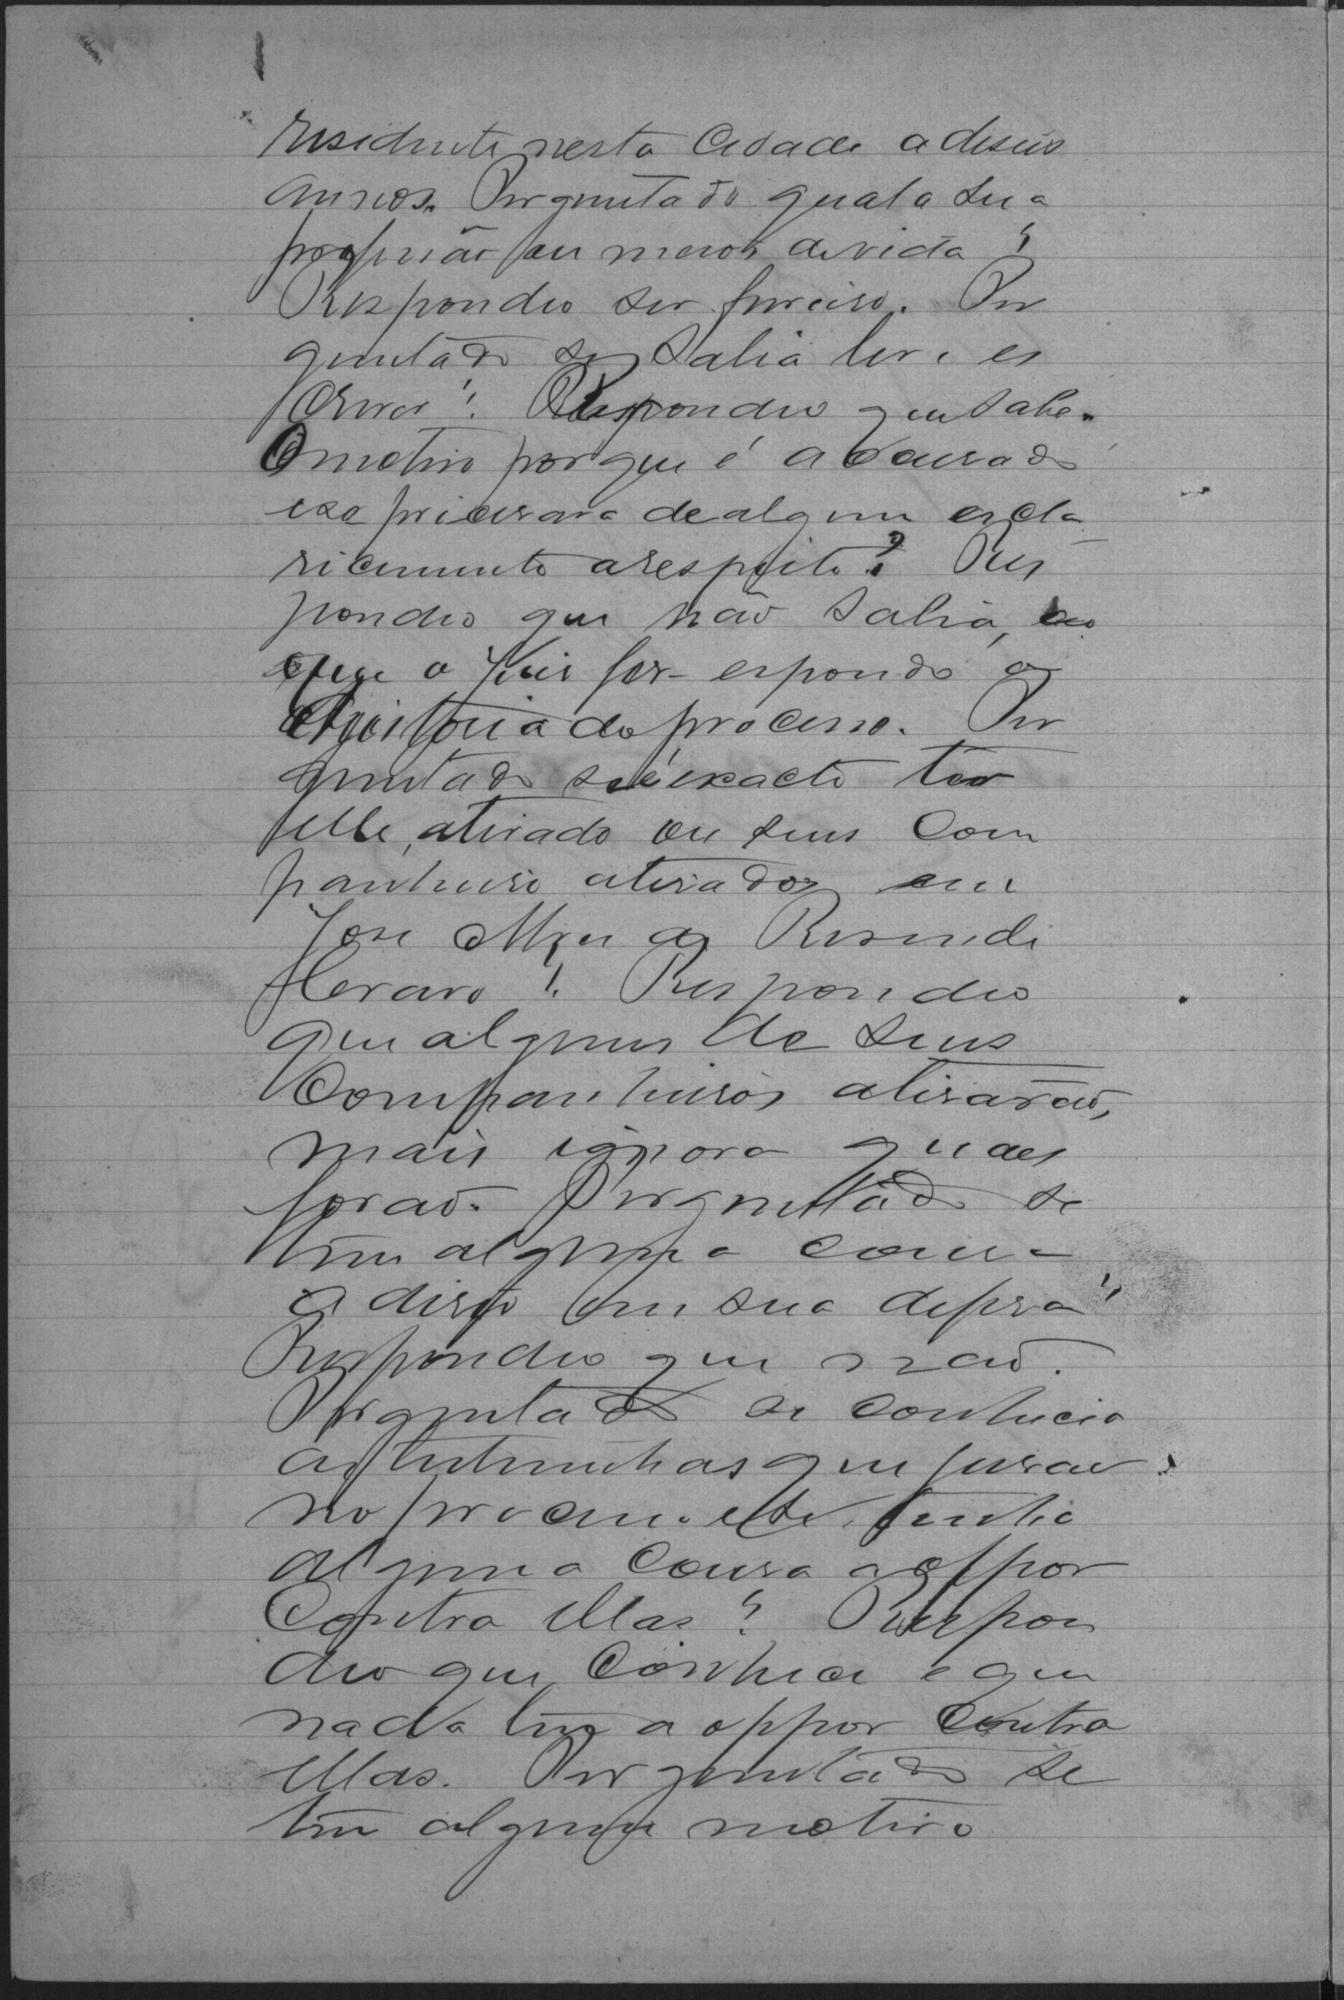 residente nesta Cidade a deseis
annos. Perguntado qual a sua
profissão ou meios de vida?
Respondeo ser
guntado se sabia ler e es
crever? Respondeo que sabe.
O motivo porque é accusado
e se precisava de algum escla
ricimento a respeito? Res
pondeo que não sabia, ao
que o Juis fes- esposndo a
historia do processo. Per
guntado se é exacto ter
elle, atirado ou seus Com
panheiro atirados em
Jose de Resende
? Respondeo
que alguns de seus
Companheiros atirarão,
mais ignora quaes
forão. Perguntado se
tem alguma cousa
a diser em sua defesa?
Respondeo que não.
Perguntado se conhecia
as testemunhas que jurão
no processo e se tinha
alguma Cousa a oppor
Contra ellas? Respon
deo que Conhece e que
nada tem a oppor Contra
ellas. Perguntado se
tem algum motivo